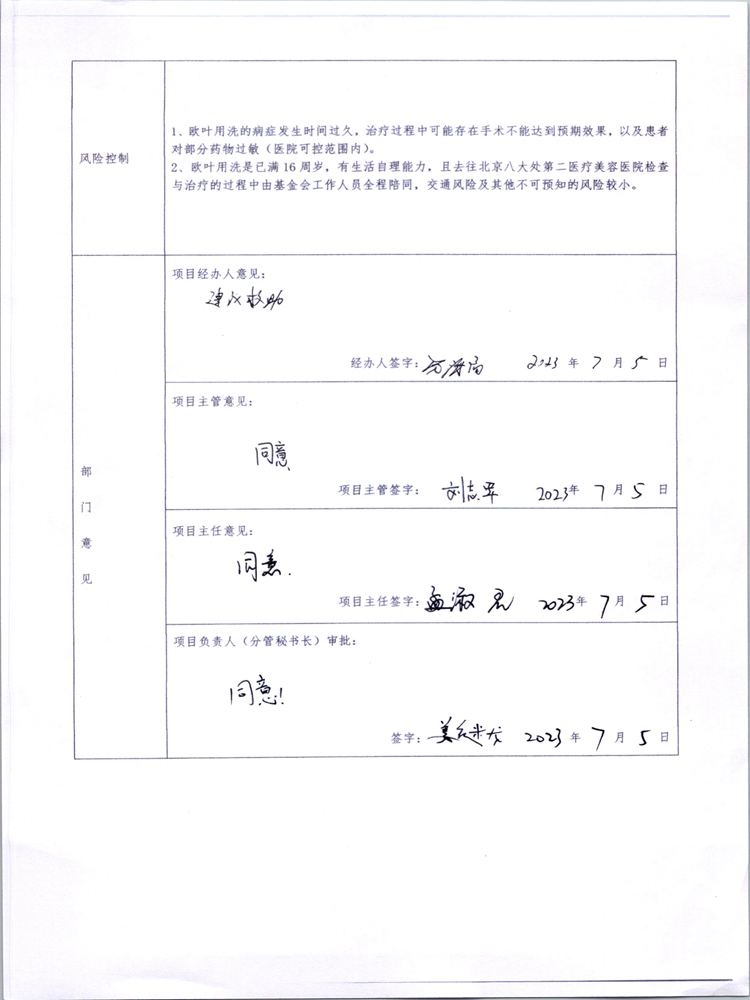 风险控制
1、欧叶用洗的病症发生时间过久，治疗过程中可能存在手术不能达到预期效果，以及患者
对部分药物过敏（医院可控范围内）。
2、欧叶用洗是已满 16 周岁，有生活自理能力，且去往北京八大处第二医疗美容医院检查
与治疗的过程中由基金会工作人员全程陪同，交通风险及其他不可预知的风险较小。
部门意见
项目经办人意见：
建议救助
经办人签字： 2023 年 7 月 5 日
项目主管意见：
同意
项目主管签字： 刘志军 2023年 7 月 5 日
项目主任意见：
同意.
项目主任签字： 2023年 7 月 5 日
项目负责人（分管秘书长）审批：
同意!
签字： 2023 年 7 月 5 日